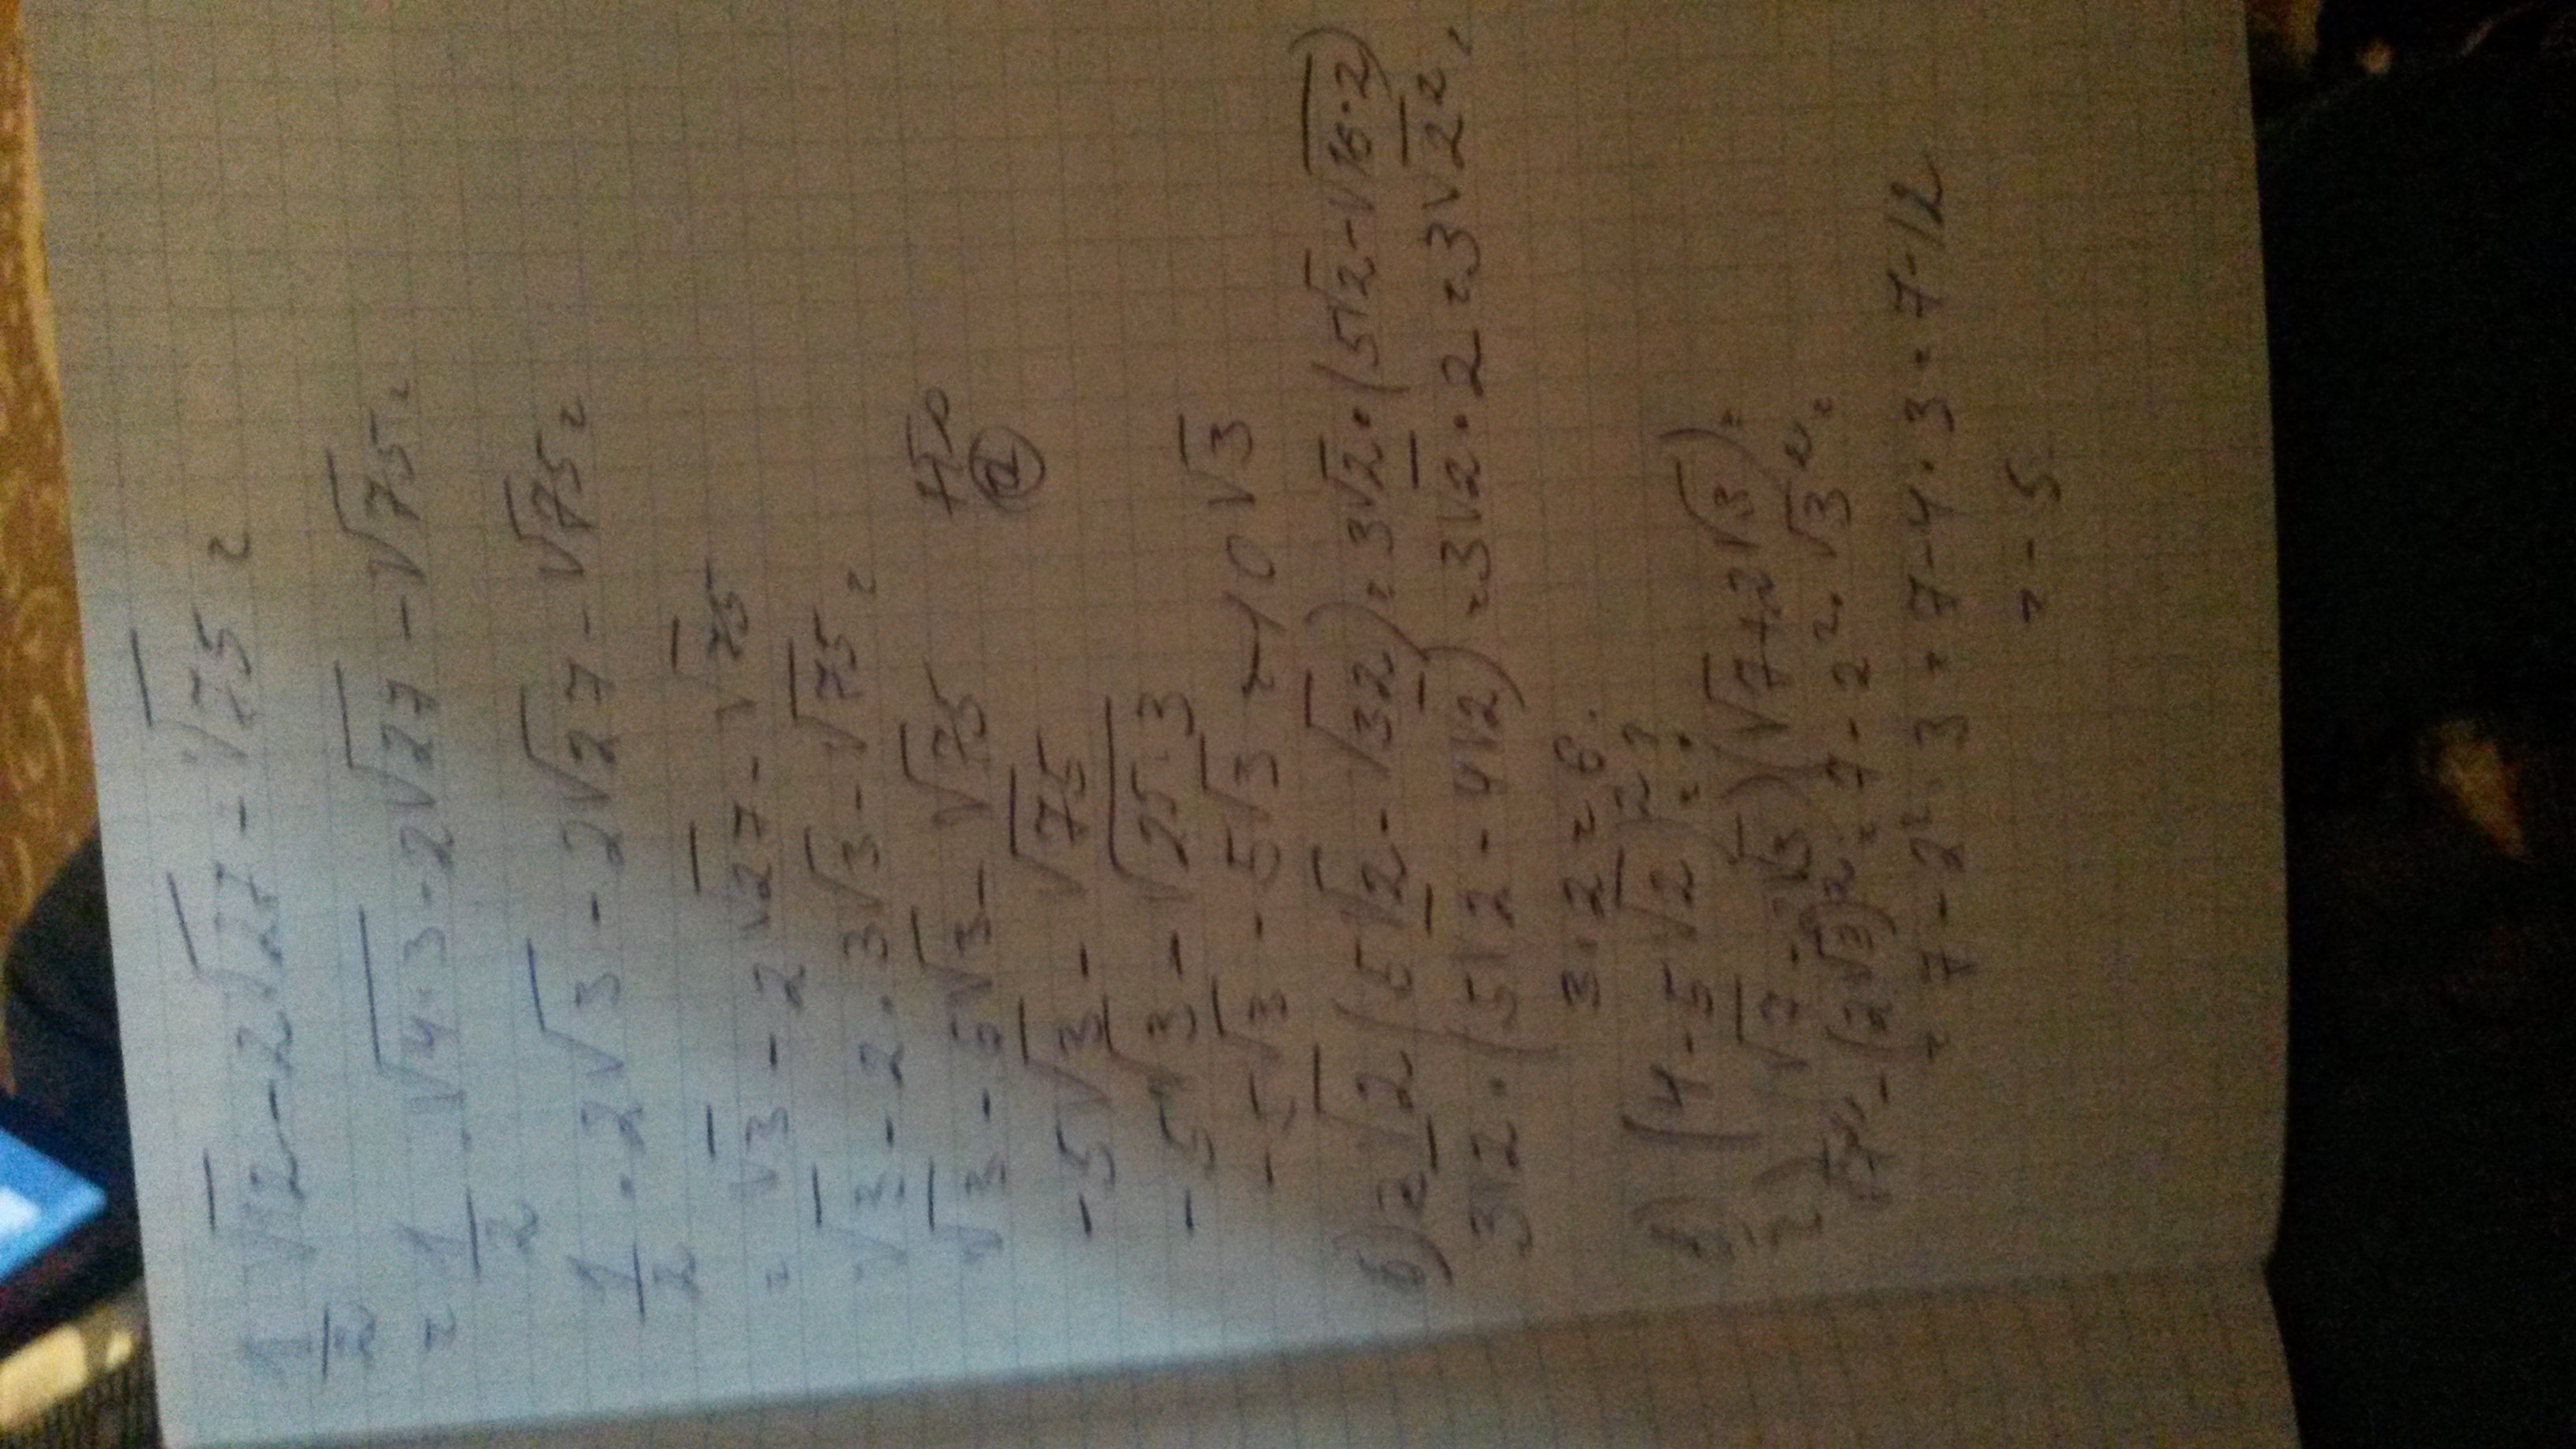 1/2 √12 - 2√27 - √75 =
= 1/2 · √4·3 - 2√27 - √75 =
1/2 · 2√3 - 2√27 - √75 =
= √3 - 2√27 - √75
√3 - 2·3√3 - √75 =
√3 - 6√3 - √75
-5√3 - √75
-5√3 - √25·3
-5√3 - 5√3 = -10√3
б) 3√2 (5√2 - √32) = 3√2 · (5√2 - √16·2)
3√2 · (5√2 - 4√2) = 3√2 · √2 = 3√2² =
3·2 = 6.
в) (4 - 5√2)² = ?
г) (√7 - 2√3)(√7 + 2√3) =
√7² - (2√3)² = 7 - 2² · √3² =
= 7 - 2² · 3 = 7 - 4 · 3 = 7 - 12
= -5